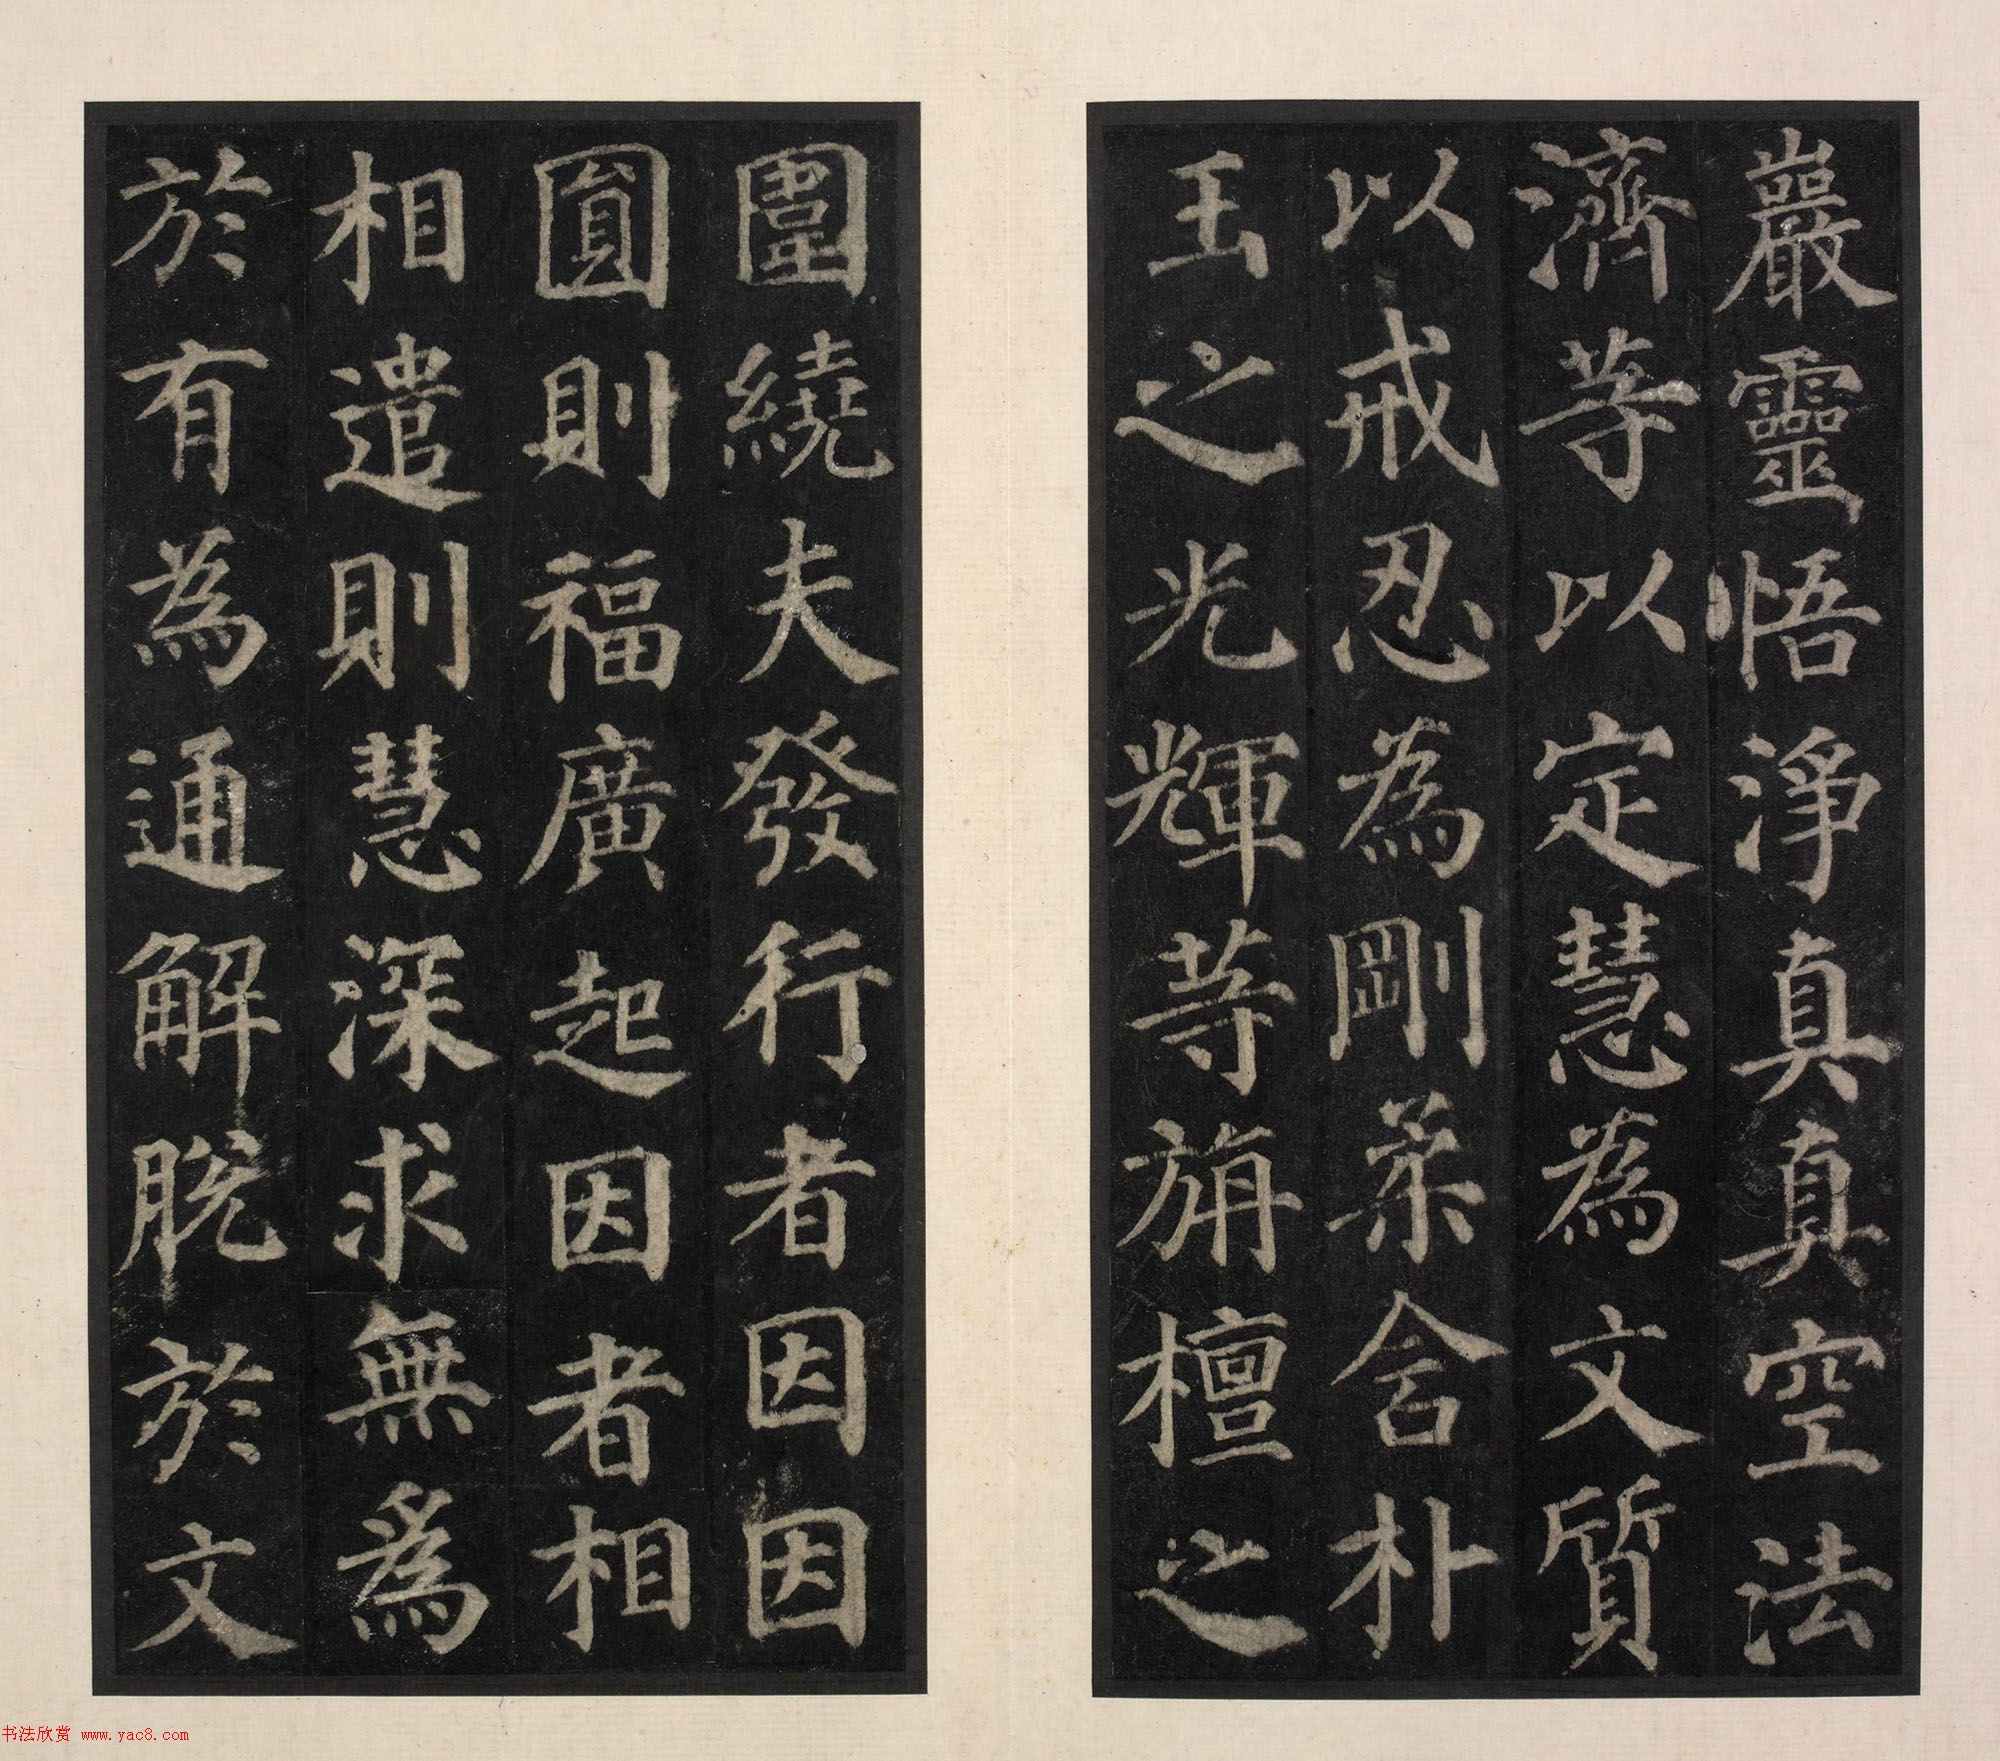 巖靈悟淨真真空法
濟等以定慧為文質
以戒忍為剛柔含朴
玉之光輝等旃檀之
圍繞夫發行者因因
圓則福廣起因者相
相遣則慧深求無為
於有為通解脫於文
书法欣赏 www.yac8.com